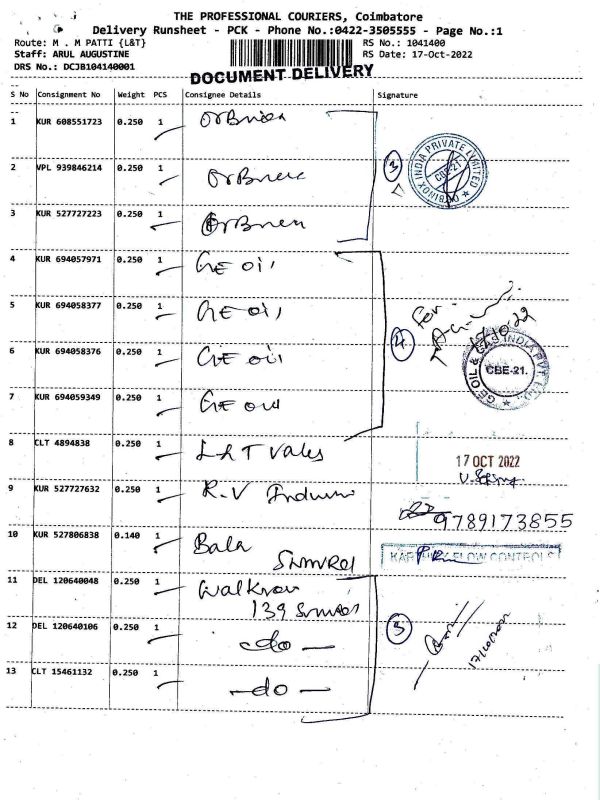 THE PROFESSIONAL COURIERS, Coimbatore
Delivery Runsheet - PCK - Phone No.:0422-3505555 - Page No.:1
Route: M . M PATTI {L&T} RS No.: 1041400
Staff: ARUL AUGUSTINE RS Date: 17-Oct-2022
DRS No.: DCJB104140001
DOCUMENT DELIVERY
S No Consignment No Weight PCS Consignee Details Signature
1 KUR 608551723 0.250 1
2 VPL 939846214 0.250 1
3 KUR 527727223 0.250 1
3
ORBINOX INDIA PRIVATE LIMITED
CBE-21
4 KUR 694057971 0.250 1 GE Oil
5 KUR 694058377 0.250 1 GE Oil
6 KUR 694058376 0.250 1 GE Oil
7 KUR 694059349 0.250 1 GE Oil
4
For
17.10.22
GE OIL & GAS INDIA PVT LTD.
CBE-21.
8 CLT 4894838 0.250 1 L&T Valves
17 OCT 2022
9 KUR 527727632 0.250 1 R.V
9789173855
10 KUR 527806838 0.140 1 Bala
FLOW CONTROLS
11 DEL 120640048 0.250 1
139
12 DEL 120640106 0.250 1 -do-
13 CLT 15461132 0.250 1 -do-
3
17/10/2022